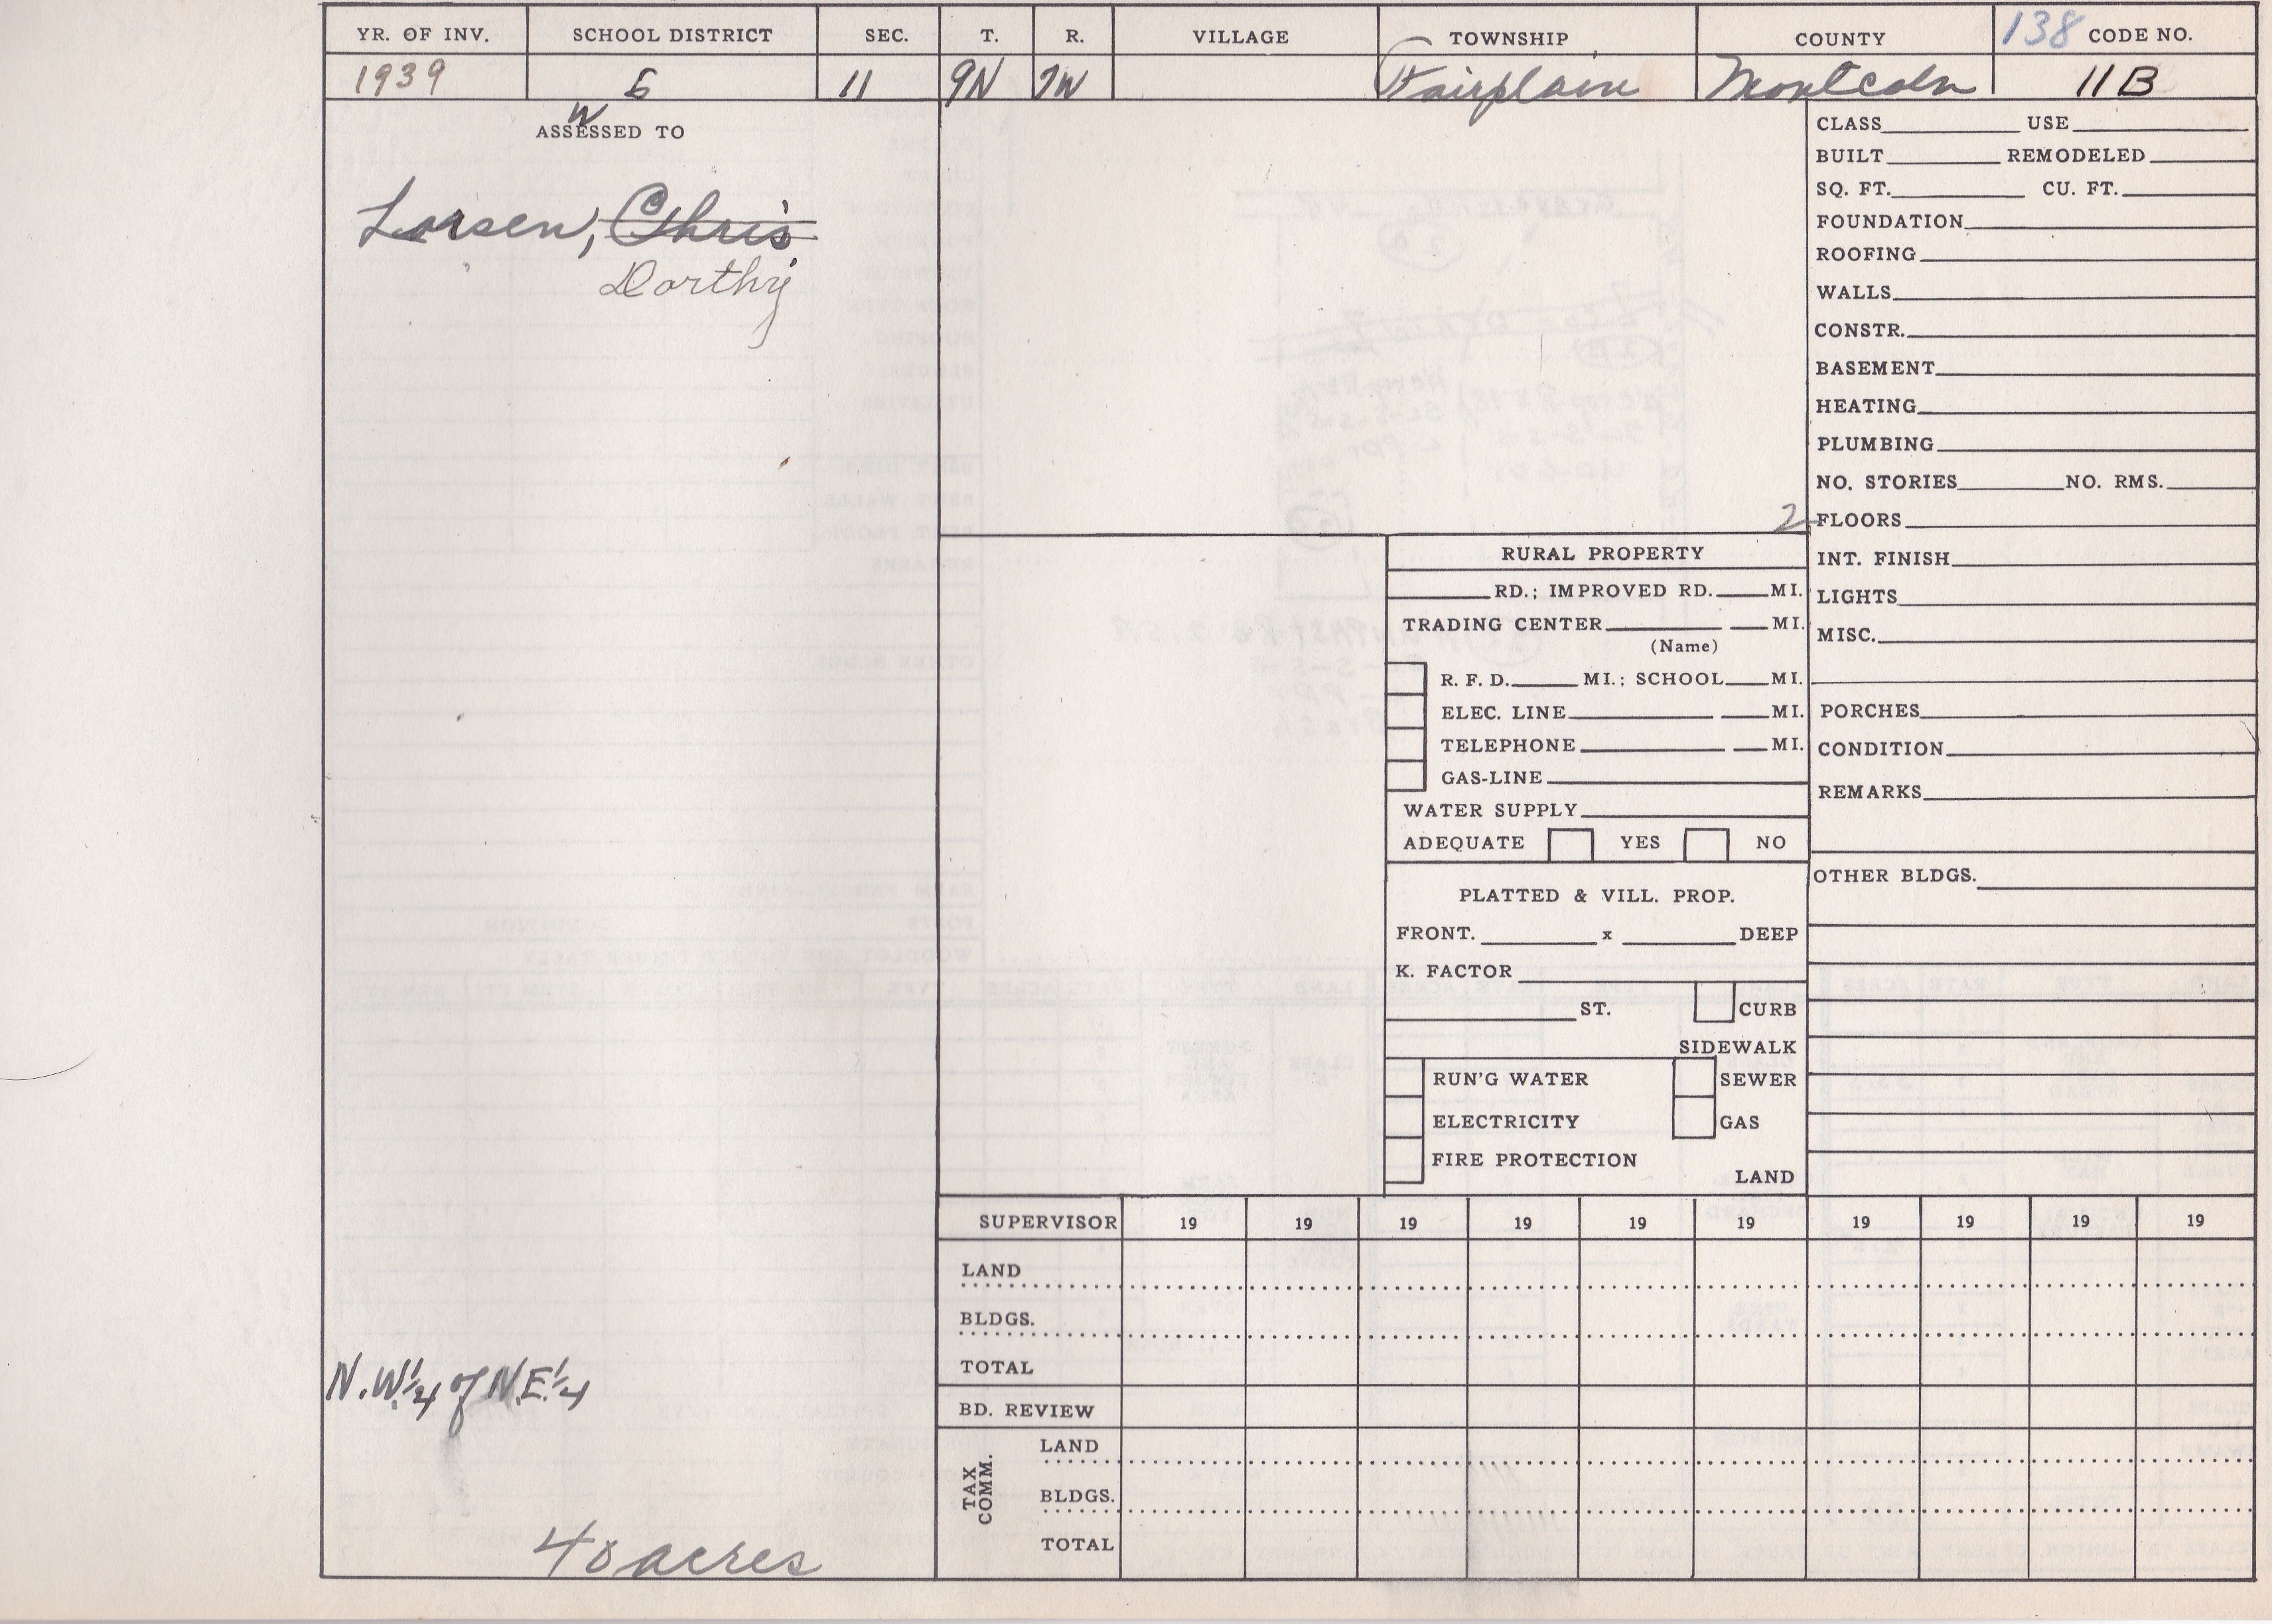 YR. OF INV. SCHOOL DISTRICT SEC. T. R. VILLAGE TOWNSHIP COUNTY 138 CODE NO.
1939 6 11 9N 7W Fairplain Montcalm 11 B
W
ASSESSED TO
Larsen, Chris
Dorthy
N.W¼ of N.E¼
40 acres
CLASS USE
BUILT REMODELED
SQ. FT. CU. FT.
FOUNDATION
ROOFING
WALLS
CONSTR.
BASEMENT
HEATING
PLUMBING
NO. STORIES NO. RMS.
2 FLOORS
INT. FINISH
LIGHTS
MISC.
PORCHES
CONDITION
REMARKS
OTHER BLDGS.
RURAL PROPERTY
RD.; IMPROVED RD. MI.
TRADING CENTER MI.
(Name)
R. F. D. MI.; SCHOOL MI.
ELEC. LINE MI.
TELEPHONE MI.
GAS-LINE
WATER SUPPLY
ADEQUATE YES NO
PLATTED & VILL. PROP.
FRONT. x DEEP
K. FACTOR
ST. CURB
SIDEWALK
RUN'G WATER SEWER
ELECTRICITY GAS
FIRE PROTECTION
LAND
SUPERVISOR 19 19 19 19 19 19 19 19 19 19
LAND
BLDGS.
TOTAL
BD. REVIEW
TAX COMM.
LAND
BLDGS.
TOTAL